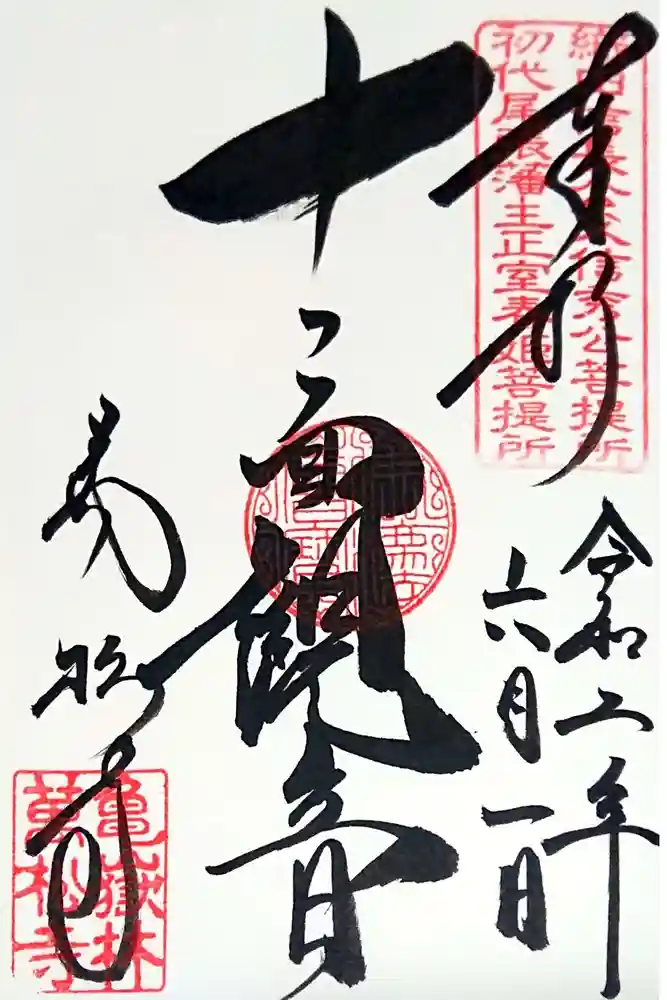 奉拝
織田信長父信秀公菩提所
初代尾張藩主正室春姫菩提所
令和二年
六月一日
十一面観音
萬松寺
亀嶽林
萬松寺